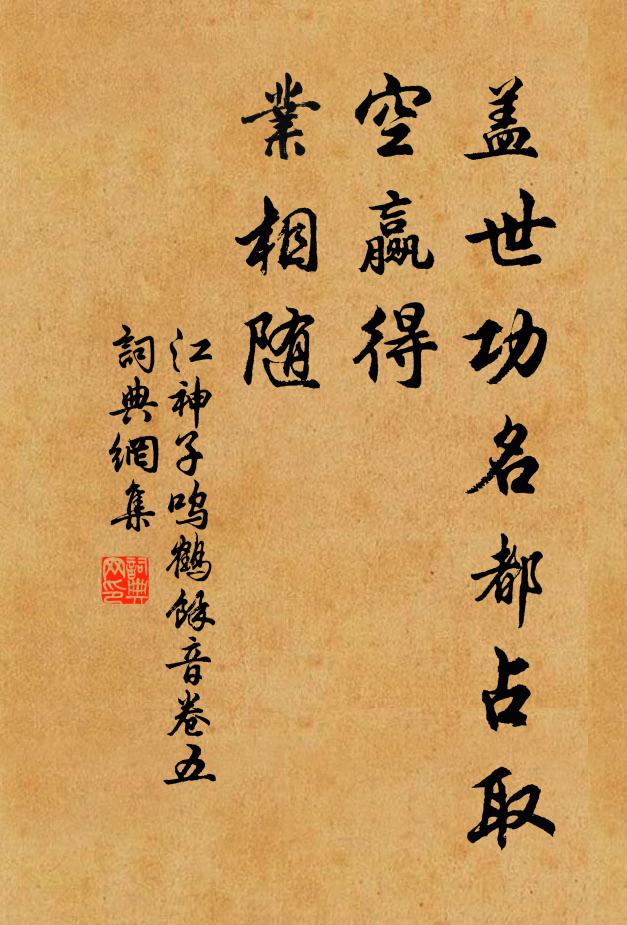 盖世功名都占取
空赢得
業相随
江神子鸣鶴餘音卷五
詞典網集
詞典網印